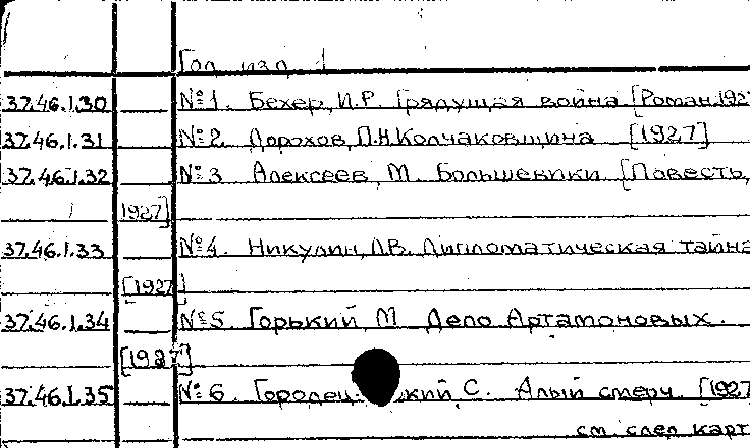 Год изд. 1
37.46.1.30 №1. Бехер, И.Р. Грядущая война [Роман, 192
37.46.1.31 №2 Дорохов, П.Н. Колчаковщина [1927]
37.46.1.32 №3 Алексеев, М. Большевики [Повесть,
1927]
37.46.1.33 №4. Никулин, Л.В. Дипломатическая тайна
[1927]
37.46.1.34 №5 Горький М Дело Артамоновых.
[1927]
37.46.1.35 №6. Городец кий, С. Алый смерч. [1927
см. след. карт